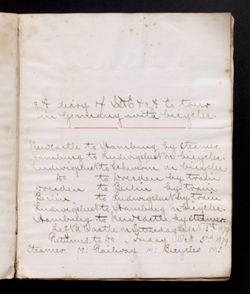 A diary of W. E. & A. C.'s tour
in Germany with bicycles.
Newcastle to Hamburg by steamer
Hamburg to Ludwigslust on bicycles
Ludwigslust to Schwerin on bicycles
Do to Dresden by train
Dresden to Berlin by train
Berlin to Ludwigslust by train
Ludwigslust to Hamburg on bicycles
Hamburg to Newcastle by steamer
Left N'Castle on Saturday Sept 13th 1879
Returned to Do Friday Oct 3rd 1879
Steamer Mls Railway Mls Bicycles Mls